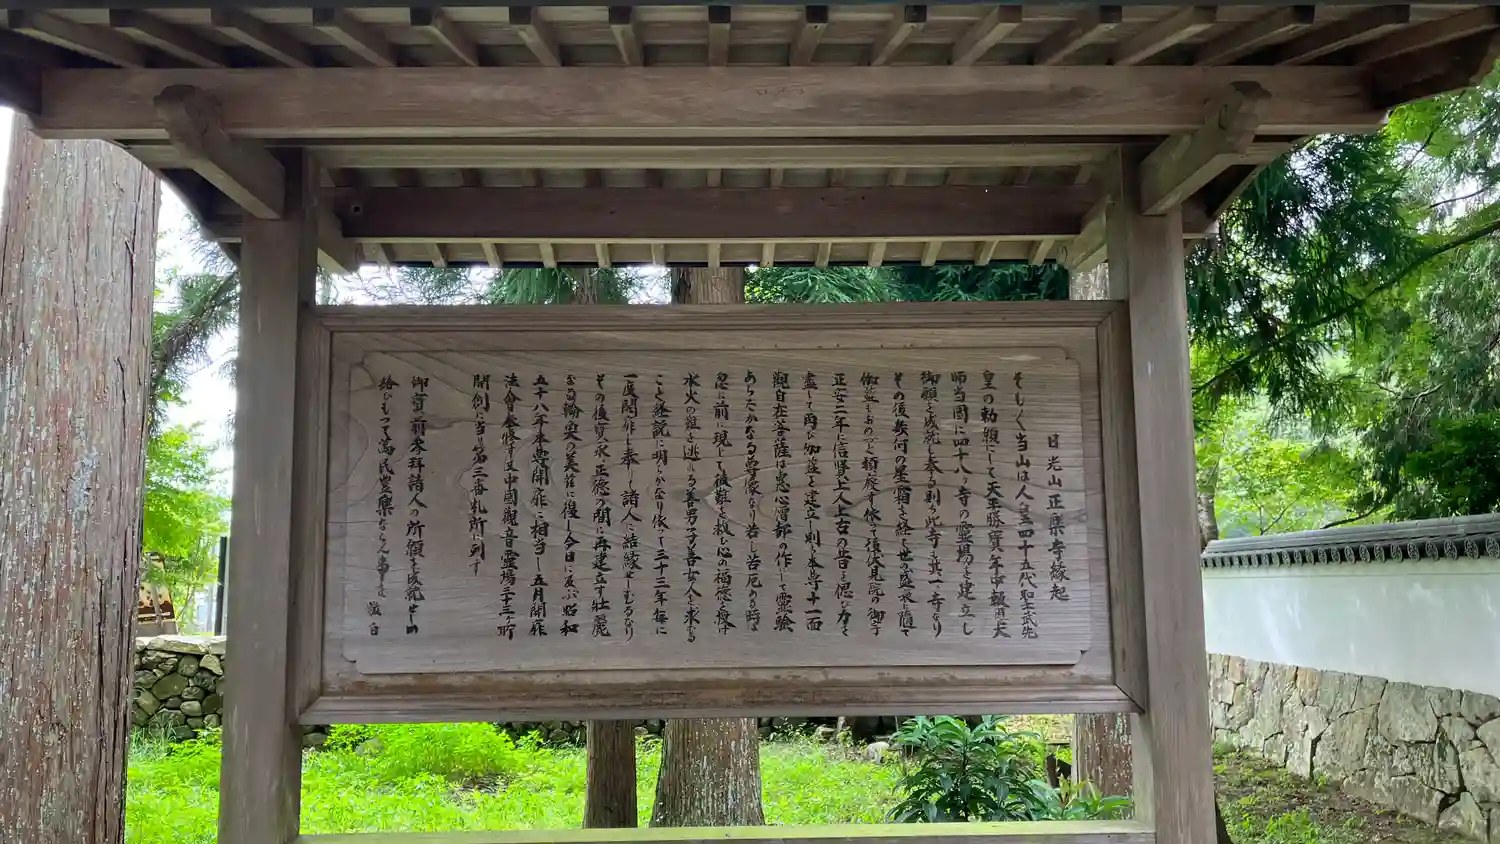 日光山正楽寺縁起
そもそも当山は人皇四十五代聖武先
皇の勅願にして天平勝宝年中報恩大
師当国に四十八ヶ寺の霊場を建立し
御願を成就し奉る則ち此寺も其一寺なり
その後幾何の星霜を経し世の盛衰に随て
伽藍もおのづと頽廃す依て後伏見院の御宇
正安二年に信賢上人上古の昔を偲び力を
盡して再び伽藍を建立し則ち本尊十一面
観自在菩薩は恵心僧都の作にして霊験
あらたかなる尊像なり若し苦厄ある時は
忽に前に現して後難を救ひ心の福徳を授け
水火の難を逃れる善男子善女人を求むる
こと経説に明らかなり依て三十三年毎に
一度開扉し奉りて諸人に結縁せしむるなり
その後宝永正徳の間に再建立す壮麗
なる輪奐の美雄に復し今日に及ぶ昭和
五十八年本尊開扉に相当し五月開扉
法会奉修す又中国観音霊場三十三ヶ所
開創に当り第三番札所に列す
御宝前参拝諸人の所願を成就せしめ
給ひもって萬民豊楽ならん事を
敬白